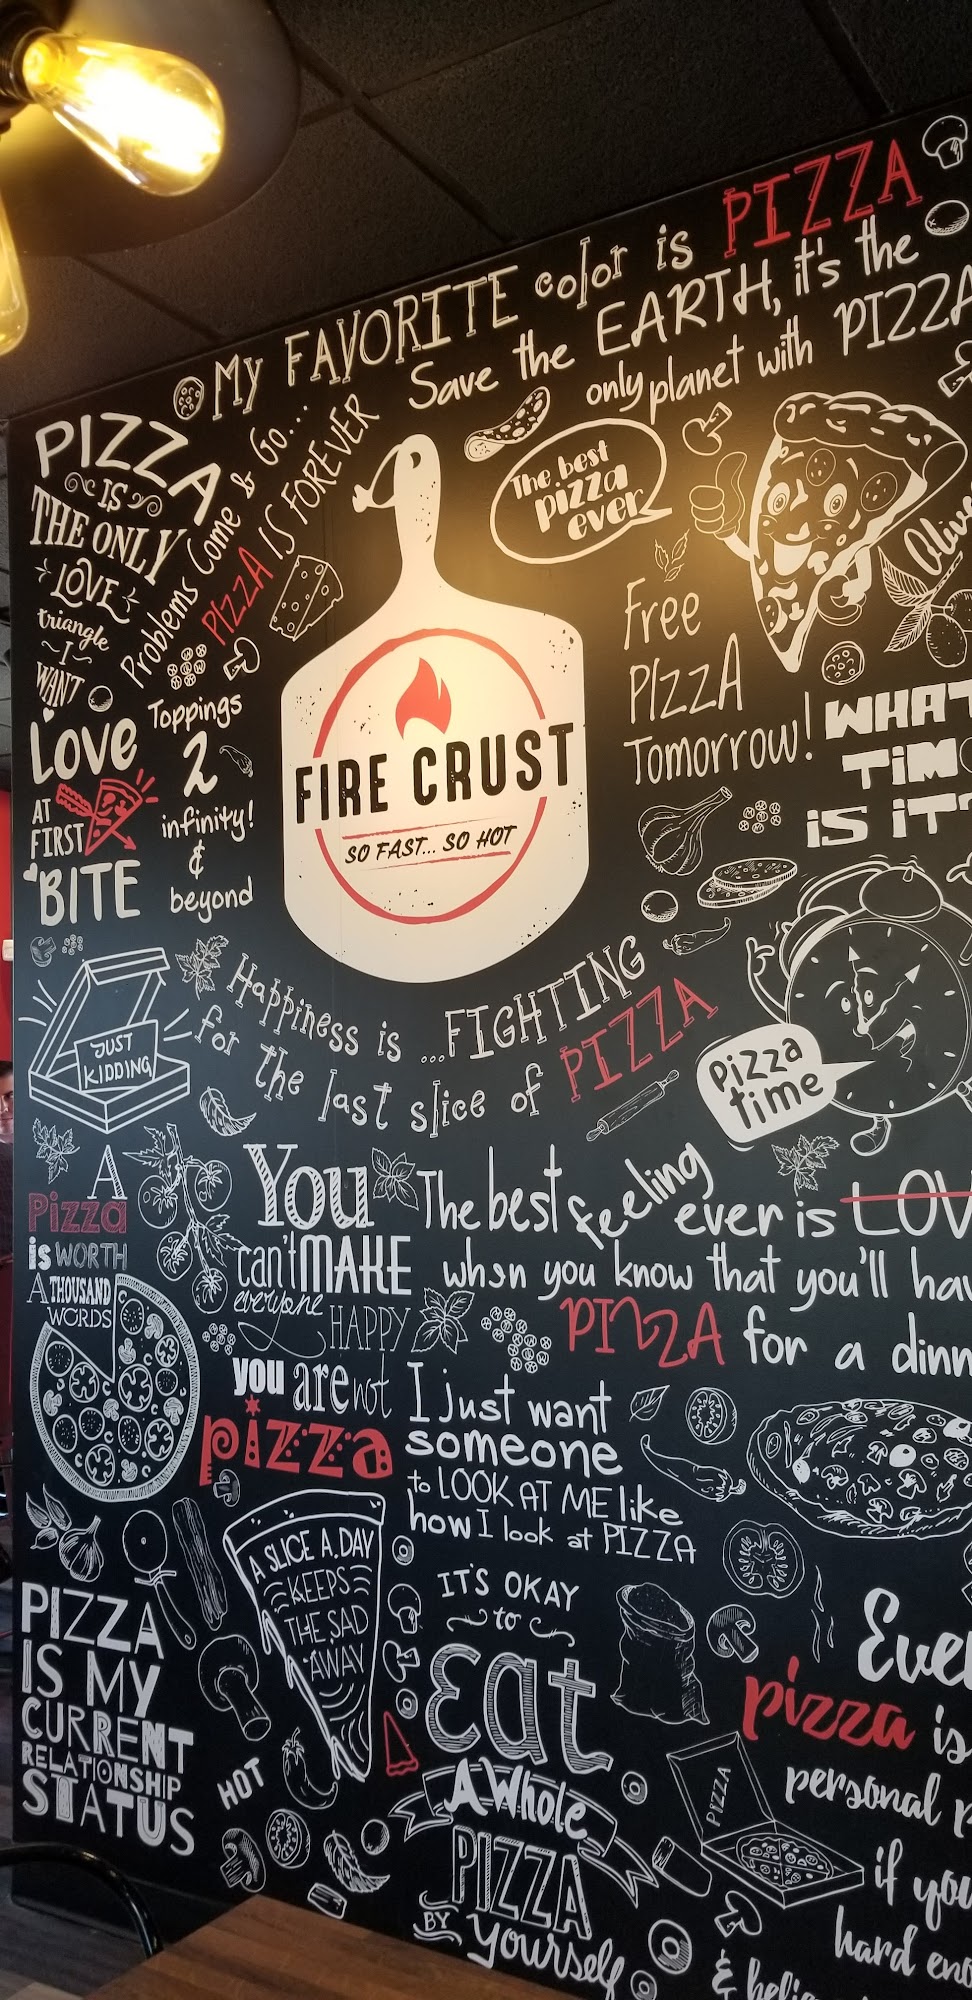 My FAVORITE color is PIZZA
Save the EARTH, it's the
only planet with PIZZA
PIZZA
IS
THE ONLY
LOVE
triangle
I
WANT
Problems Come & Go...
PIZZA IS FOREVER
The best
pizza
ever
Free
PIZZA
Tomorrow!
Olive
Love
AT
FIRST
BITE
Toppings
2
infinity!
&
beyond
FIRE CRUST
SO FAST... SO HOT
WHAT
TiM
iS iT
Pizza
time
JUST
KIDDING
Happiness is ...FIGHTING
for the last slice of PIZZA
A
Pizza
is WORTH
A THOUSAND
WORDS
You
can't MAKE
everyone
HAPPY
you are not
pizza
The best feeling
ever is LOV
when you know that you'll hav
PIZZA for a dinn
I just want
someone
to LOOK AT ME like
how I look at PIZZA
A SLICE A DAY
KEEPS
THE SAD
AWAY
PIZZA
IS MY
CURRENT
RELATIONSHIP
STATUS
HOT
IT'S OKAY
to
Eat
A Whole
PIZZA
BY
Yourself
PIZZA
Eve
pizza is
personal p
if you
hard eno
& beli